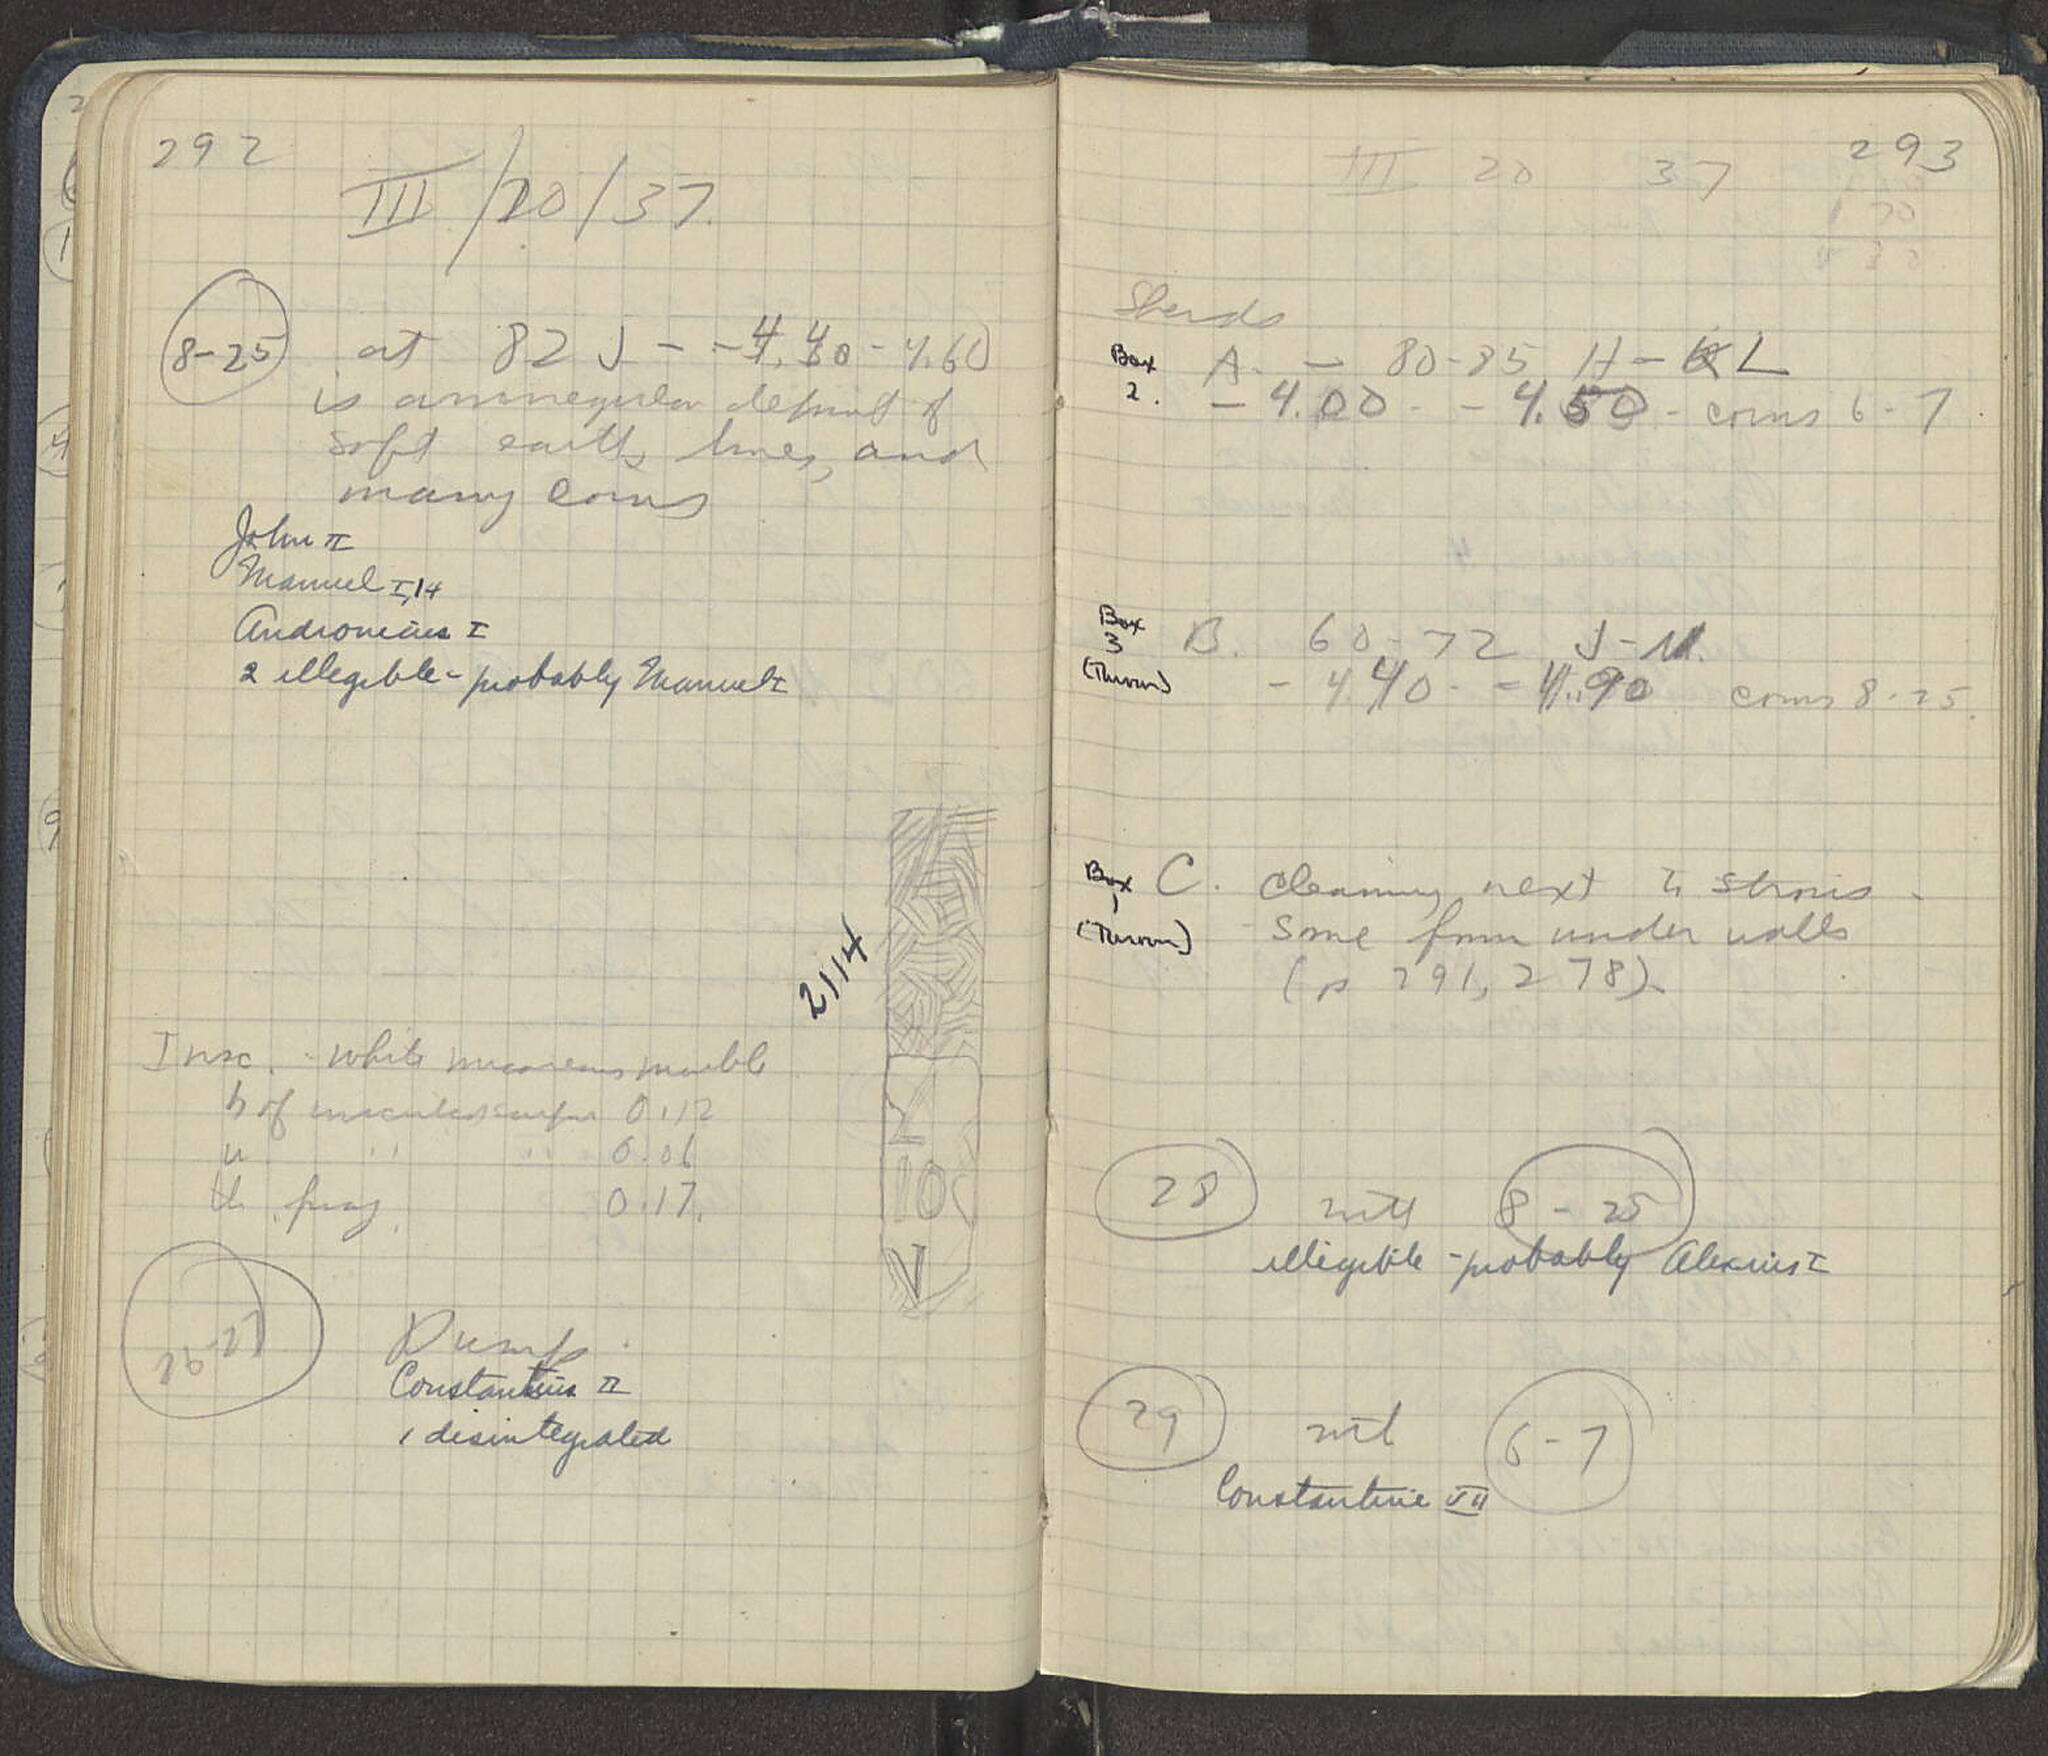 292
III/20/37.
8-25 at 82 J - -4.40 - 4.60
is an irregular deposit of
soft earth, lines, and
many coins
John II
Manuel I, 14
Andronicus I
2 illegible - probably Manuel I
2114
Insc. - white micaceous marble
h of inscribed surface 0.12
w " " 0.06
th. frag. 0.17.
ΙΟ
V
26-27 Dump.
Constantius II
1 disintegrated
293
III 20 37
Sherds
Box 2. A. - 80-85 H-L
-4.00 - -4.50 - coins 6-7.
Box 3 B. 60-72 J-M.
(Thrown) -4.40 - -4.90 coins 8-25.
Box 1 C. cleaning next to strosis -
(Thrown) some from under walls
(p 291, 278).
28 with 8-25
illegible - probably Alexius I
29 with 6-7
Constantine VII